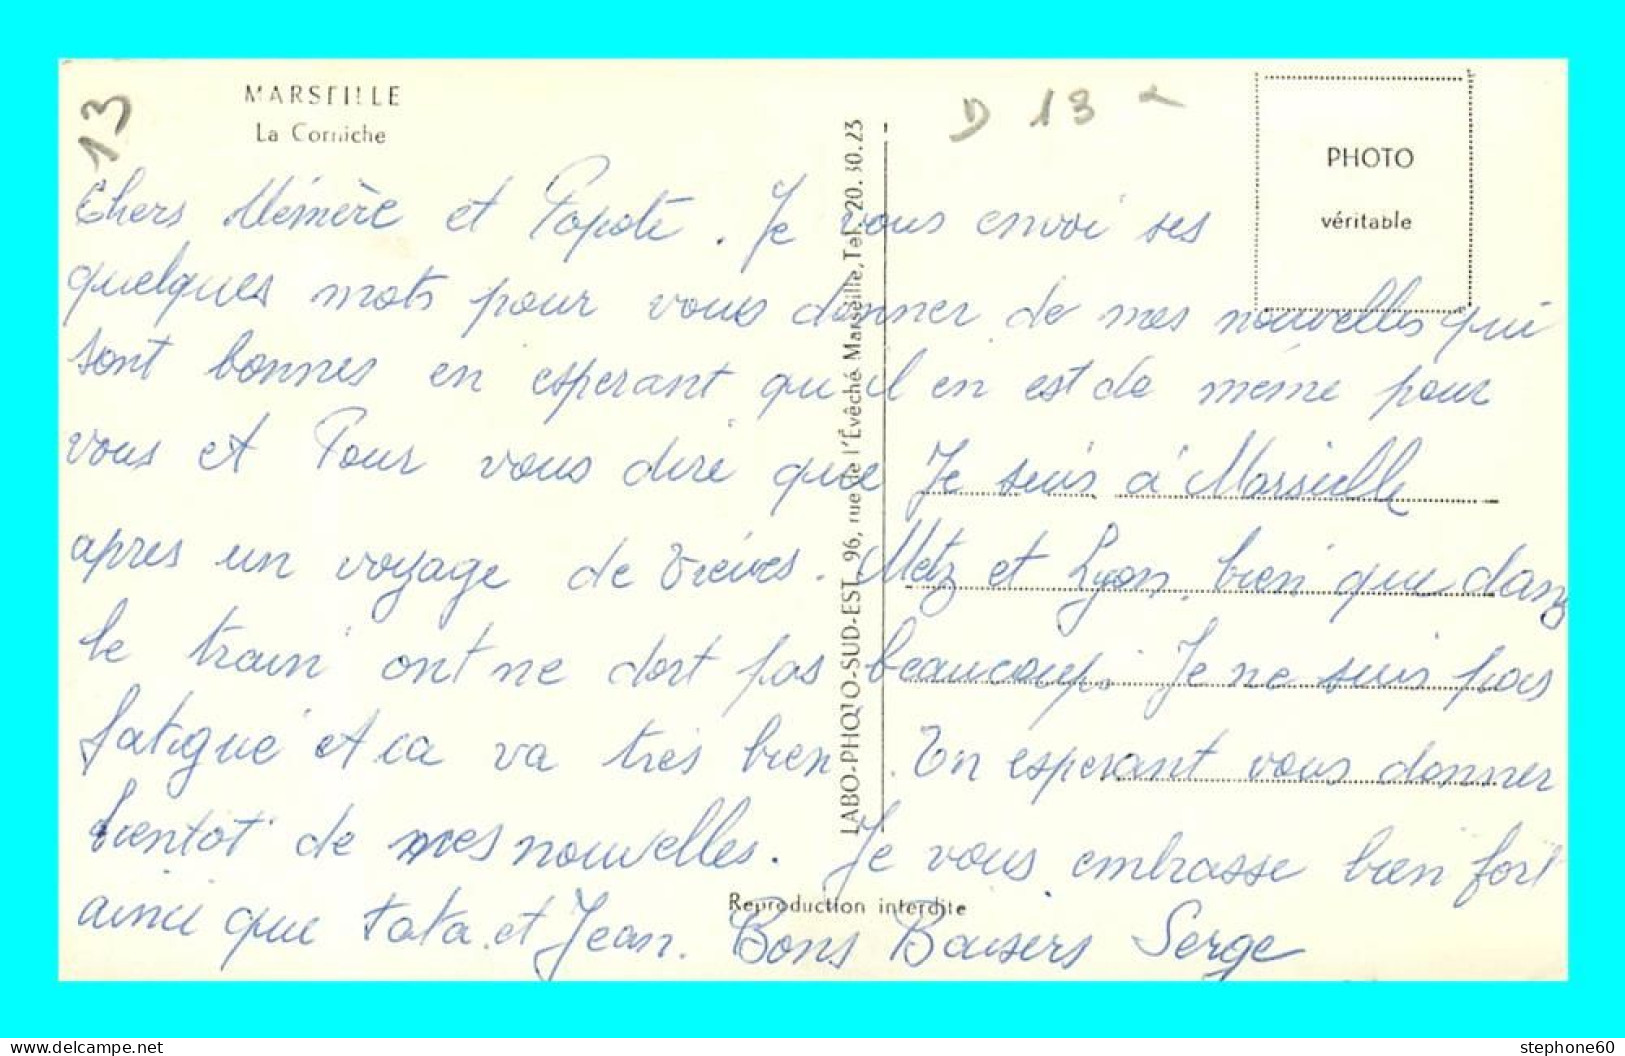 MARSEILLE
La Corniche
13
D 13
PHOTO
véritable
Chers Mémère et Papote. Je vous envoi ses
quelques mots pour vous donner de mes nouvelles qui
sont bonnes en esperant qu'il en est de même pour
vous et Pour vous dire que Je suis à Marseille
apres un voyage de Metz et Lyon, bien que dans
le train ont ne dort pas beaucoup. Je ne suis pas
fatigué et ca va très bien. En esperant vous donner
bientot de mes nouvelles. Je vous embrasse bien fort
ainsi que tata et Jean. Bons Baisers Serge
LABO-PHOTO-SUD-EST, 96, rue de l'Évêché Marseille, Tel. 20.30.23
Reproduction interdite
stephone60